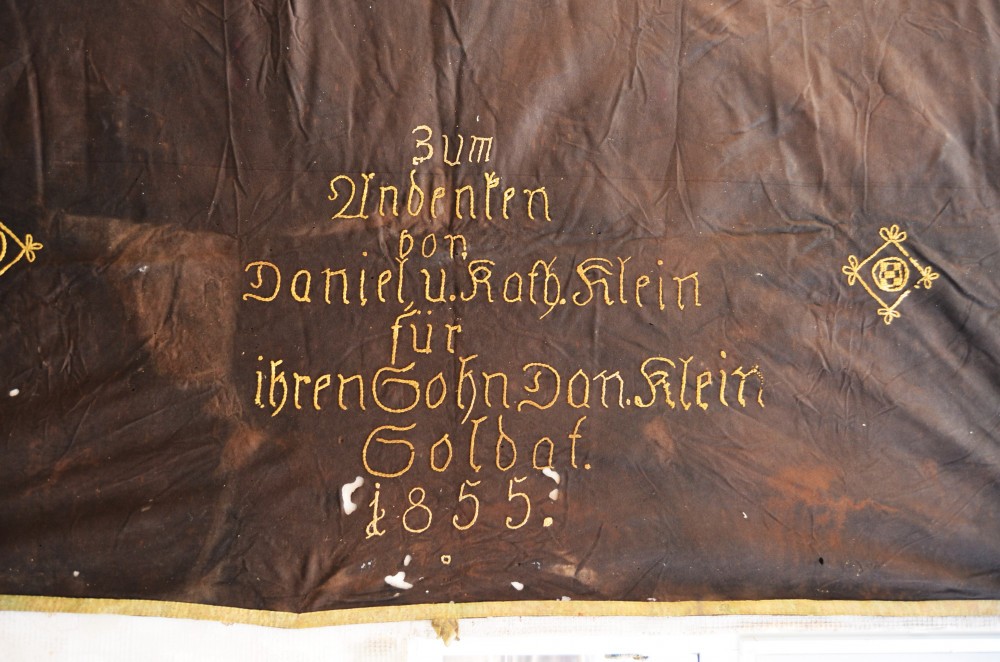 Zum
Andenken
von
Daniel u. Kath. Klein
für
ihren Sohn Dan. Klein
Soldat.
1855.